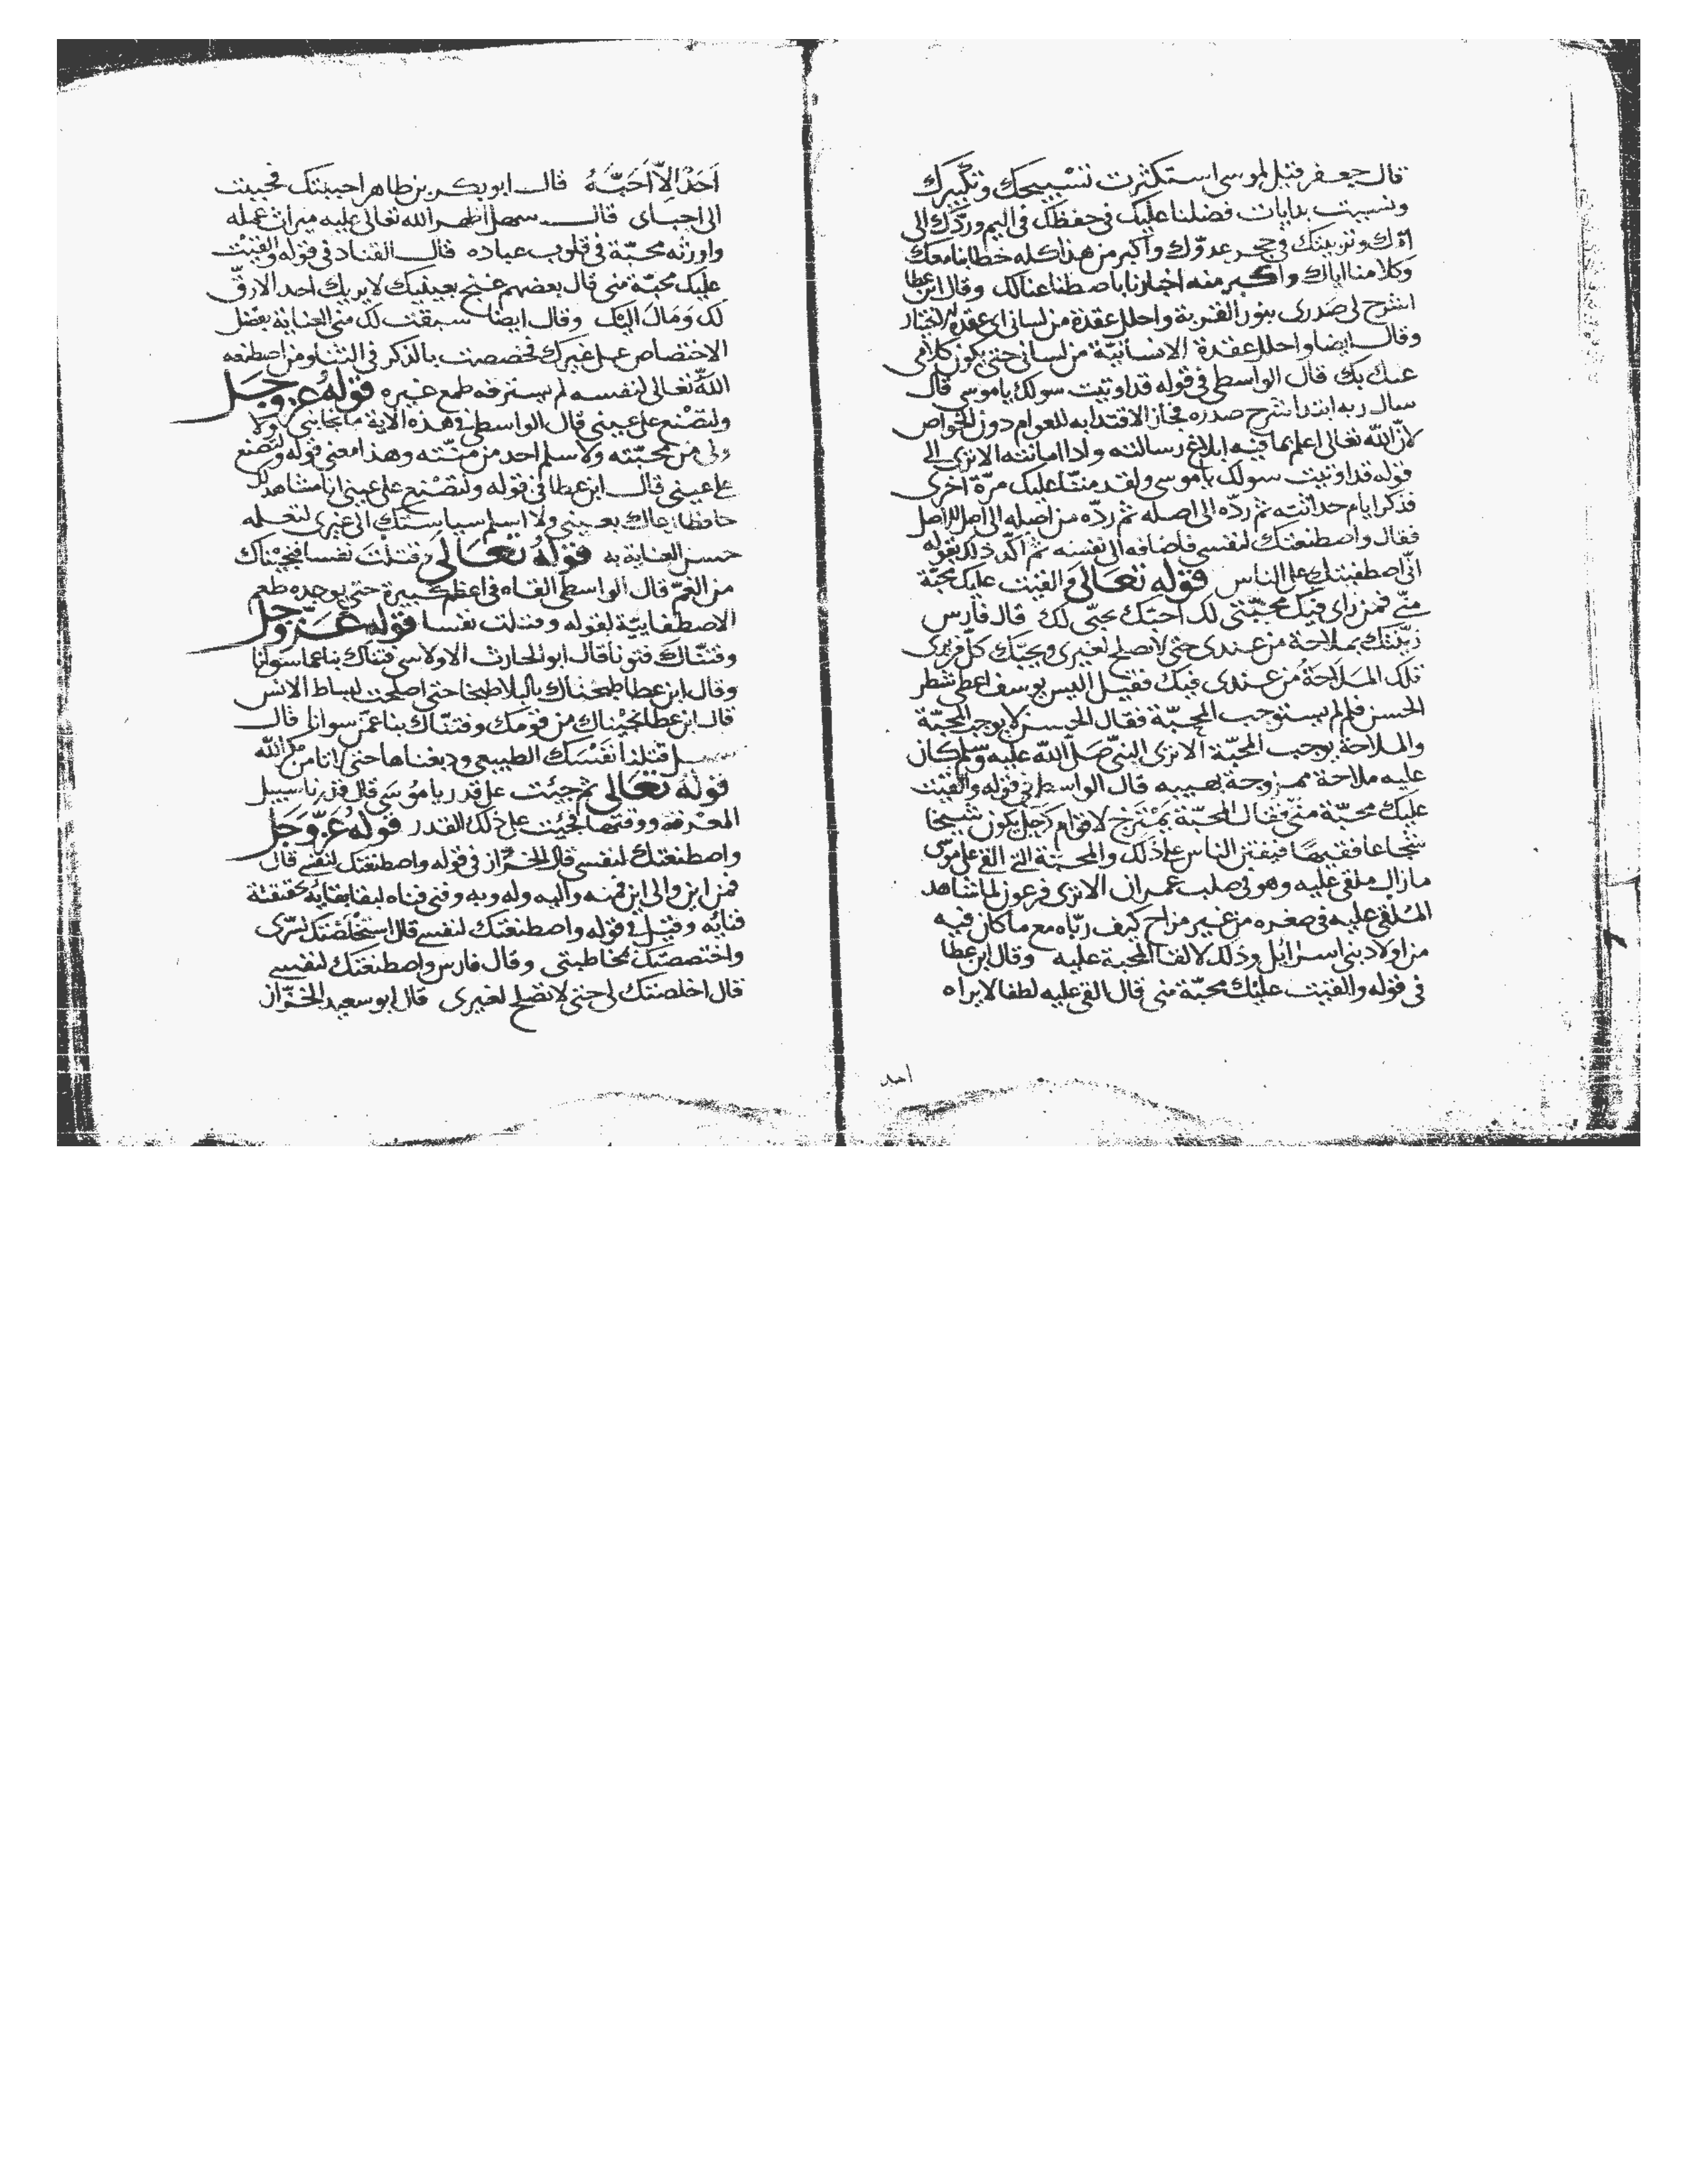 قال جعفر قيل لموسى استكثرت تسبيحك وتكبيرك
ونسيت بدايات فضلنا عليك في حفظك في اليم وردك الى
امك وتربيتك في حجر عدوّك وأكبر من هذا كله خطابنا معك
وكلامنا اياك واكبر منه اخبارنا باصطناعنا لك وقال ابن عطا
اشرح لي صدري بنور القربة واحلل عقدة من لساني اي عقدة
وقال ايضا واحلل عقدة الانسانيّة من لساني حتى يكون كلامي
عنك بك قال الواسطي في قوله قد اوتيت سولك يا موسى قال
سال ربه ابتدا شرح صدره فجاز الاقتدا به للعوام دون الخواص
لانّ الله تعالى اعلم بما فيه ابلاغ رسالته وادا امانته الا ترى الى
قوله قد اوتيت سولك يا موسى ولقد مننّا عليك مرّة اخرى
فذكر ايام حداثته ثم ردّه الى اصله ثم ردّه من اصله الى اصل الاصل
فقال واصطنعتك لنفسي فاضافه الى نفسه ثم اكّد ذلك بقوله
انّي اصطفيتك على الناس قوله تعالى والقيت عليك محبّة
منّي فمن راى فيك محبّتي لك احبّك بحبّي لك قال فارس
زيّنتك بملاحة من عندى حتى لا تصلح لغيرى ويحبّك كلّ فرد يرى
تلك الملاحة من عندى فيك فقيل اليس يوسف اعطى شطر
الحسن فلم لم يستوجب المحبّة فقال الحسن لا يوجب المحبّة
والملاحة يوجب المحبّة الا ترى النبيّ صلّى الله عليه وسلّم كان
عليه ملاحة ممزوجة بهيبه قال الواسطي في قوله والقيت
عليك محبّة منّي فقال المحبّة يمتزج لاقوام كرجل يكون شيخا
شجاعا فقيها فيفتتن الناس على ذلك والمحبّة التي القى على موسى
ما زال ملقى عليه وهو في صلب عمران الا ترى فرعون لما شاهد
الملقى عليه في صغره من غير مزاج كيف ربّاه مع ما كان فيه
من اولاد بني اسرائل وذلك لالقا المحبة عليه وقال ابن عطا
في قوله والقيت عليك محبّة مني قال القى عليه لطفا لا يراه
احد
احد الّا احبّه قال ابو بكر بن طاهر احببتك فحبيت
الى احباى قال سهل اظهر الله تعالى عليه ميراث عمله
واورثه محبّة في قلوب عباده قال القناد في قوله والقيت
عليك محبّة مني قال بعضهم غنج بعينيك لا يريك احد الا رقّ
لك ومال اليك وقال ايضا سبقت لك مني العناية بفضل
الاختصاص على غيرك فخصصت بالذكر في الثنا ومن اصطنعه
الله تعالى لنفسه لم يسترقه طمع غيره قوله عز وجل
ولتصنع على عيني قال الواسطي في هذه الاية ما نجا نبي ولا
ولى من محبّته ولا سلم احد من منّته وهذا معنى قوله ولتصنع
على عيني قال ابن عطا في قوله ولتصنع على عيني انا مشاهد لك
حافظا يرعاك بعيني ولا اسلم سياستك الى غيرى لتعلمه
حسن العناية به قوله تعالى وقتلت نفسا فنجيناك
من الغمّ قال الواسطي القاه في اعظم كبيرة حتى يوجده طعم
الاصطفاييّة لقوله وقتلت نفسا قوله عزّ وجل
وفتنّاك فتونا قال ابو الحارث الاولاسي فتنّاك بنا عما سوانا
وقال ابن عطا طبخناك بالبلا طبخا حتى اصلحت لبساط الانس
قال ابن عطا نجيناك من قومك وفتنّاك بنا عمّن سوانا قال
سهل قتلنا نفسك الطبيعي ودبغناها حتى لا تامن مكر الله
قوله تعالى ثم جيئت على قدر يا موسى قال قدّرنا سبيل
المعرفة ووقتها فجيئت على ذلك القدر قوله عزّ وجل
واصطنعتك لنفسي قال الخرّاز في قوله واصطنعتك لنفسي قال
فمن اين والى اين فمنه واليه وله وبه وفنى فناه لبقا بقائه بحقيقة
فنايه وقيل في قوله واصطنعتك لنفسي قال استخلصتك لسرّى
واختصصتك بمخاطبتي وقال فارس واصطنعتك لنفسي
قال اخلصتك لي حتى لا تصلح لغيرى قال ابو سعيد الخرّاز